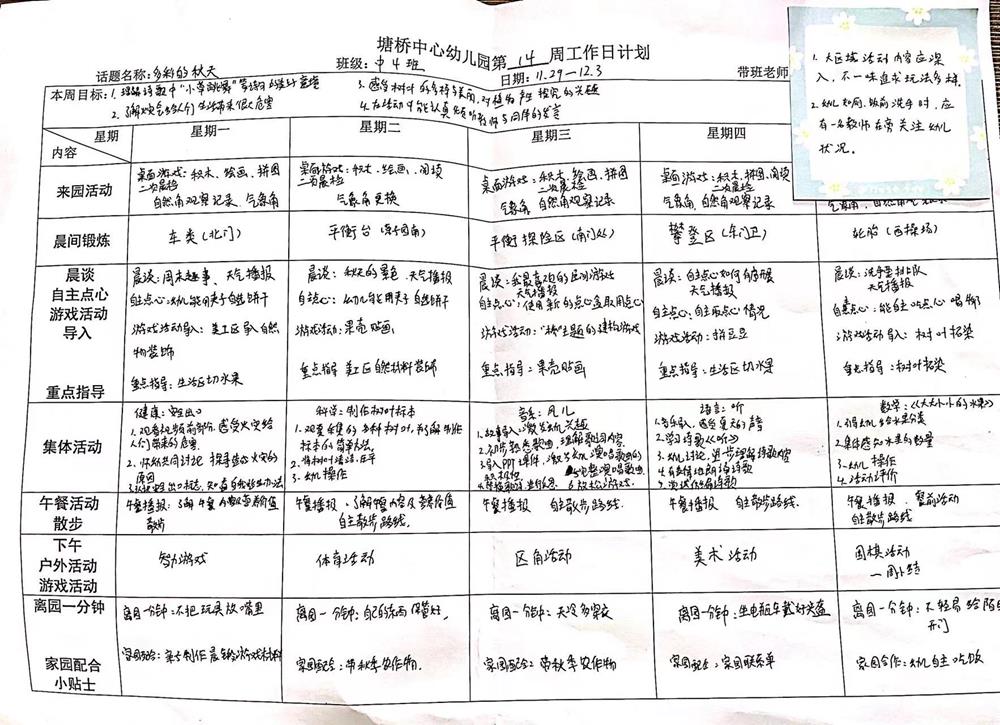 塘桥中心幼儿园第 14 周工作日计划
话题名称:多彩的秋天 班级:中4班 日期:11.29—12.3 带班老师
本周目标:1.理解诗歌中
3.感受树叶的多样与美丽,对植物产生探究的兴趣
2.了解火灾会给人们生活带来很大危害
4.在活动中能认真倾听教师与同伴的发言
1.大区域活动内容应深
入,不一味追求玩法多样。
2.幼儿如厕、饭前洗手时,应
有一名教师在旁关注幼儿
状况。
星期
内容
星期一 星期二 星期三 星期四
来园活动
桌面游戏:积木、绘画、拼图
二次晨检
自然角观察记录、气象角
桌面游戏:积木、绘画、阅读
二次晨检
气象角更换
桌面游戏:积木、绘画、拼图
二次晨检
气象角、自然角观察记录
桌面游戏:积木、拼图、阅读
二次晨检
气象角、自然角观察记录
气象角、自然角观察记录
晨间锻炼
车类(北门) 平衡台 平衡探险区(南门处) 攀登区(东门卫) 轮胎(西操场)
晨谈
自主点心
游戏活动
导入
重点指导
晨谈:周末趣事、天气播报
自主点心:幼儿能用夹子自选饼干
游戏活动导入:美工区导入自然
物装饰
重点指导:生活区切水果
晨谈:秋天的景色、天气播报
自主点心:幼儿能用夹子自选饼干
游戏活动:果壳贴画
重点指导 美工区自然材料装饰
晨谈:我最喜欢的区别游戏
天气播报
自主点心:使用新的点心盒取用点心
游戏活动:"桥"主题的建构游戏
重点指导:果壳贴画
晨谈:自主点心如何
天气播报
自主点心:自主取点心情况
游戏活动:拼豆豆
重点指导:生活区切水果
晨谈:洗手要排队
天气播报
自主点心:能自主吃点心喝奶
游戏活动导入:树叶拓染
重点指导:树叶拓染
集体活动
健康:安全出口
1.观看视频前部分,感受火灾给
人们带来的危害
2.师幼共同讨论 探寻造成火灾的
原因
3.认识安全出口标志,知道自救逃生办法
科学:制作树叶标本
1.观察采集的各种树叶,并了解制作
标本的简单方法。
2.将树叶清洁、压平
3.幼儿操作
音乐:风儿
1.故事导入,激发幼儿兴趣
2.初步熟悉歌曲,理解歌词内容
3.导入PPT课件,激发幼儿演唱歌曲的
积极性
4.完整演唱歌曲
语言:听
1.音乐导入,感受夏天的声音
2.学习诗歌《听》
3.幼儿讨论,进一步理解诗歌内容
4.有表情地朗诵诗歌
5.尝试仿编诗歌
数学:《大大小小的水果》
2.集体感知水果的数量
3.幼儿操作
4.活动评价
午餐活动
散步
午餐播报:了解午餐内容与营养价值
散步
午餐播报、了解午餐内容及营养价值
自主散步路线。
午餐播报 自主散步路线。
午餐播报 自主散步路线
午餐播报、餐前活动
自主散步路线
下午
户外活动
游戏活动
智力游戏 体育活动 区角活动 美术活动 围棋活动
一周小结
离园一分钟
离园一分钟:不把玩具放嘴里
离园一分钟:自己的东西保管好。
离园一分钟:天冷多穿衣
离园一分钟:坐电瓶车戴好头盔
离园一分钟:不轻易给陌
开门
家园配合
小贴士
家园配合:亲子制作晨锻游戏材料
家园配合:带秋季农作物。
家园配合:带秋季农作物
家园配合:家园联系单
家园合作:幼儿自主吃饭